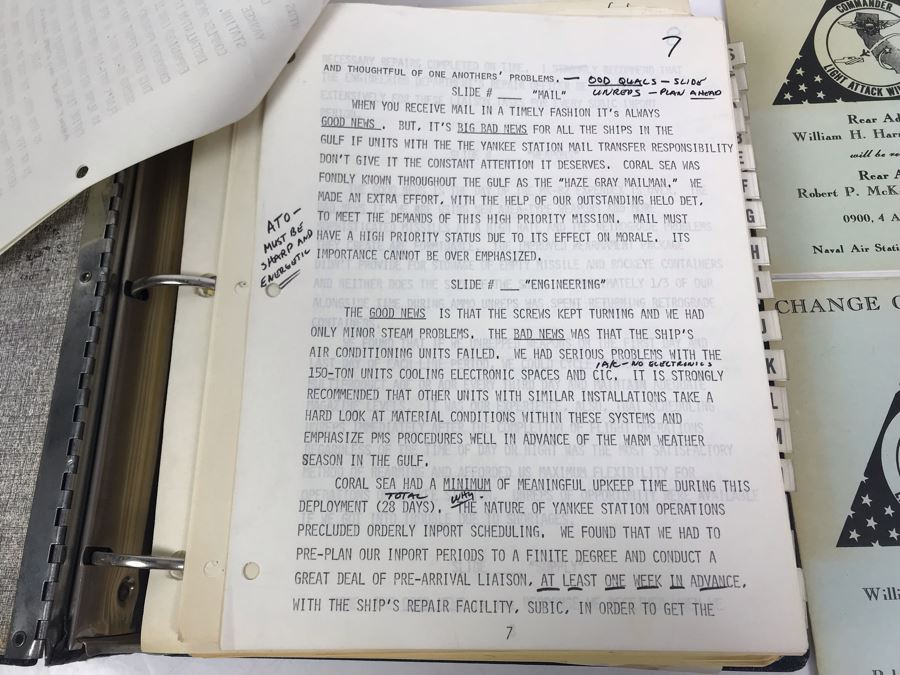 7
AND THOUGHTFUL OF ONE ANOTHERS' PROBLEMS. — OOD QUALS – SLIDE
UNREPS – PLAN AHEAD
SLIDE # ___ "MAIL"
WHEN YOU RECEIVE MAIL IN A TIMELY FASHION IT'S ALWAYS
GOOD NEWS. BUT, IT'S BIG BAD NEWS FOR ALL THE SHIPS IN THE
GULF IF UNITS WITH THE THE YANKEE STATION MAIL TRANSFER RESPONSIBILITY
DON'T GIVE IT THE CONSTANT ATTENTION IT DESERVES. CORAL SEA WAS
FONDLY KNOWN THROUGHOUT THE GULF AS THE "HAZE GRAY MAILMAN." WE
MADE AN EXTRA EFFORT, WITH THE HELP OF OUR OUTSTANDING HELO DET,
TO MEET THE DEMANDS OF THIS HIGH PRIORITY MISSION. MAIL MUST
HAVE A HIGH PRIORITY STATUS DUE TO ITS EFFECT ON MORALE. ITS
IMPORTANCE CANNOT BE OVER EMPHASIZED.
ATO –
MUST BE
SHARP AND
ENERGETIC
SLIDE # ___ "ENGINEERING"
THE GOOD NEWS IS THAT THE SCREWS KEPT TURNING AND WE HAD
ONLY MINOR STEAM PROBLEMS. THE BAD NEWS WAS THAT THE SHIP'S
AIR CONDITIONING UNITS FAILED. WE HAD SERIOUS PROBLEMS WITH THE
A/C – NO ELECTRONICS
150-TON UNITS COOLING ELECTRONIC SPACES AND CIC. IT IS STRONGLY
RECOMMENDED THAT OTHER UNITS WITH SIMILAR INSTALLATIONS TAKE A
HARD LOOK AT MATERIAL CONDITIONS WITHIN THESE SYSTEMS AND
EMPHASIZE PMS PROCEDURES WELL IN ADVANCE OF THE WARM WEATHER
SEASON IN THE GULF.
CORAL SEA HAD A MINIMUM OF MEANINGFUL UPKEEP TIME DURING THIS
TOTAL WHY -
DEPLOYMENT (28 DAYS). THE NATURE OF YANKEE STATION OPERATIONS
PRECLUDED ORDERLY INPORT SCHEDULING. WE FOUND THAT WE HAD TO
PRE-PLAN OUR INPORT PERIODS TO A FINITE DEGREE AND CONDUCT A
GREAT DEAL OF PRE-ARRIVAL LIAISON, AT LEAST ONE WEEK IN ADVANCE,
WITH THE SHIP'S REPAIR FACILITY, SUBIC, IN ORDER TO GET THE
7
F
G
H
J
K
L
M
COMMANDER
LIGHT ATTACK
Rear
William H.
will be
Rear
Robert P.
0900, 4
Naval Air
CHANGE